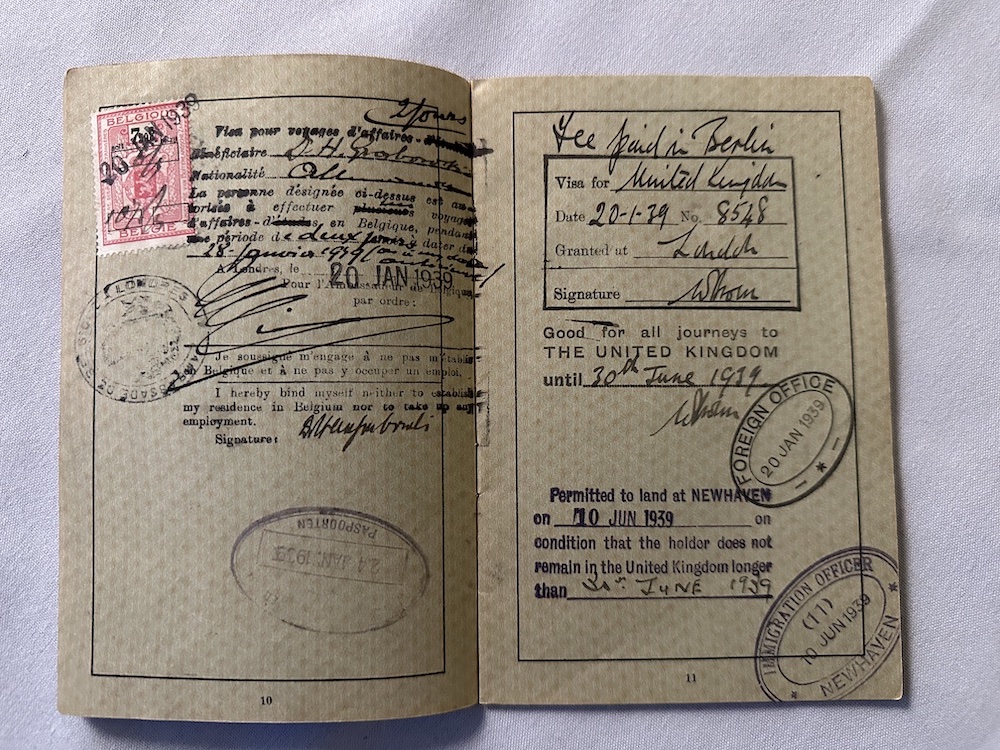 2 jours
BELGIQUE
20 JAN 1939
BELGIE
Visa pour voyages d'affaires
Bénéficiaire D. H.
Nationalité Allemande
La personne désignée ci-dessus est au-
torisée à effectuer plusieurs voyages
d'affaires - d'études en Belgique, pendant
une période de deux jours à dater du
28 Janvier 1939
A Londres, le 20 JAN 1939
Pour l'Ambassadeur de Belgique
par ordre:
LONDRES
Je soussigné m'engage à ne pas m'établir
en Belgique et à ne pas y occuper un emploi.
I hereby bind myself neither to establish
my residence in Belgium nor to take up any
employment.
Signature:
PASPOORTEN
24 JAN. 1939
10
Fee paid in Berlin
Visa for United Kingdom
Date 20-1-39 No. 8548
Granted at London
Signature
Good for all journeys to
THE UNITED KINGDOM
until 30th June 1939
FOREIGN OFFICE
20 JAN 1939
Permitted to land at NEWHAVEN
on 10 JUN 1939 on
condition that the holder does not
remain in the United Kingdom longer
than 30th JUNE 1939
IMMIGRATION OFFICER
(11)
10 JUN 1939
NEWHAVEN
11